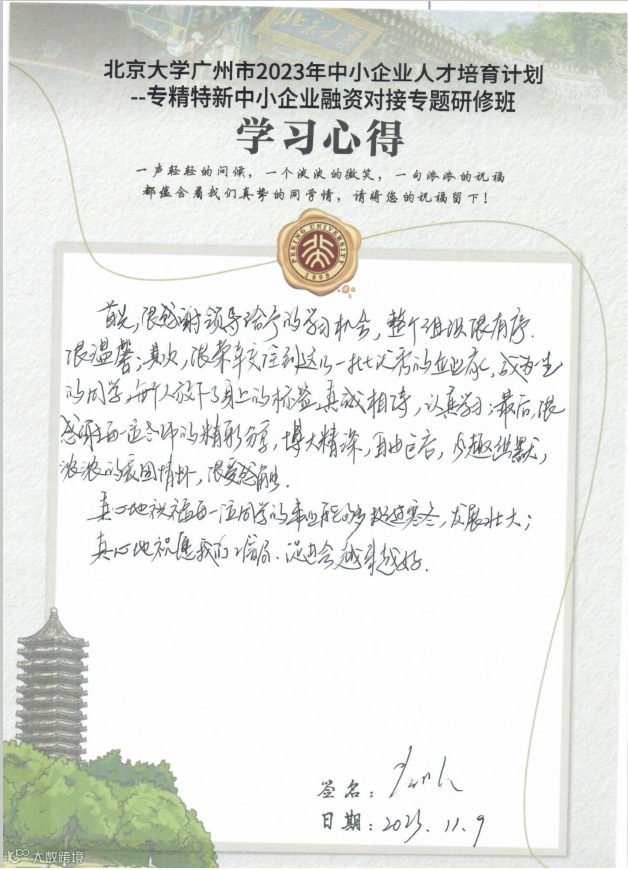 北京大学
北京大学广州市2023年中小企业人才培育计划
--专精特新中小企业融资对接专题研修班
学习心得
一声轻轻的问候，一个淡淡的微笑，一句浓浓的祝福
都蕴含着我们真挚的同学情，请将您的祝福留下！
PEKING UNIVERSITY
1898
首先，很感谢领导给予的学习机会，整个组织很有序．
很温馨；其次，很荣幸认到这么一批优秀的企业家，成为一生
的同学，每个人放下了身上的标签，真诚相待，认真学习；最后，很
感谢每一位老师的精彩分享，博大精深，风趣幽默，
浓浓的家国情怀，很受感触．
真心地祝福每一位同学的事业能够挺过寒冬，发展壮大；
真心地祝愿我的工信局、促进会越来越好．
签名：
日期：2023.11.9
大数跨境